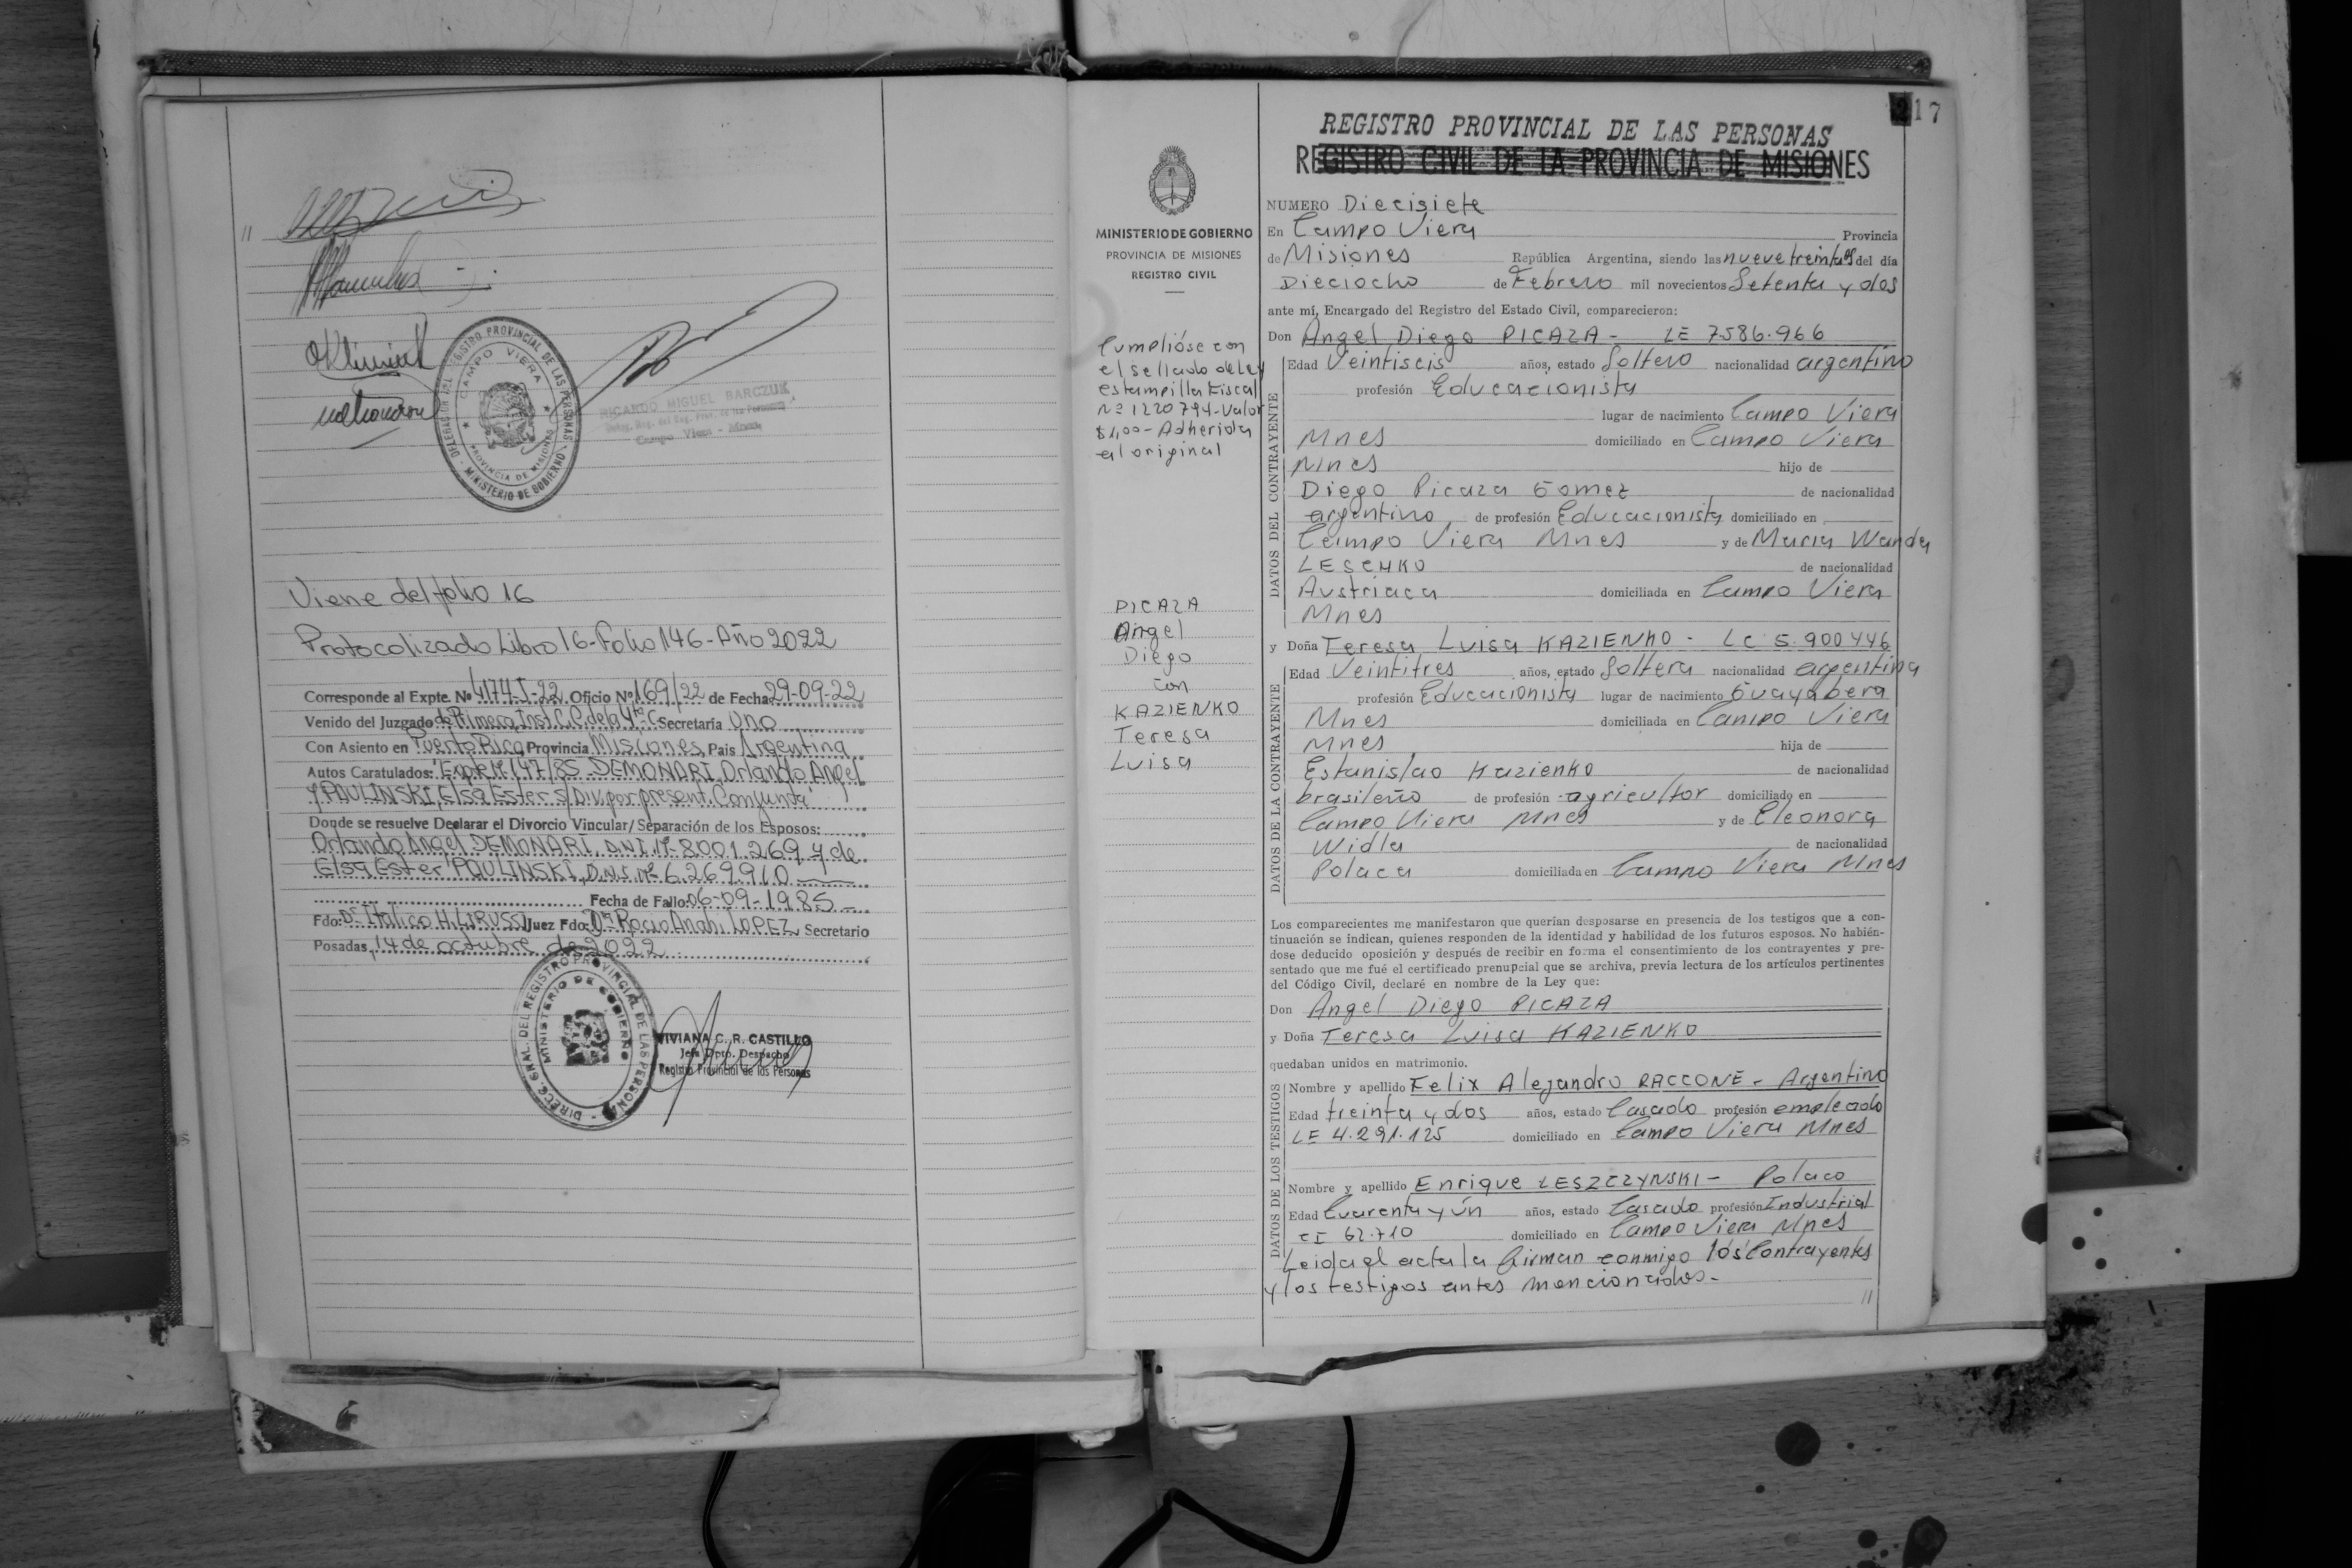 //
DELEGACION DEL REGISTRO PROVINCIAL DE LAS PERSONAS - MINISTERIO DE GOBIERNO
CAMPO VIERA
PROVINCIA DE MISIONES
RICARDO MIGUEL BARCZUK
Campo Viera - Mnes.
Viene del folio 16
Protocolizado Libro 16-Folio 146-Año 2022
Corresponde al Expte. Nº 4174-I-22 Oficio Nº 169/22 de Fecha 29-09-22
Venido del Juzgado de Primera Inst. C.C. de la 4ta C. Secretaría Uno
Con Asiento en Puerto Rico Provincia Misiones País Argentina
Autos Caratulados: "Expte Nº 147/85 DEMONARI, Orlando Angel
y PAULINSKI, Elsa Ester s/Div. por present. Conjunta"
Donde se resuelve Declarar el Divorcio Vincular/Separación de los Esposos:
Orlando Angel DEMONARI, D.N.I. Nº 8001.269 y de
Elsa Ester PAULINSKI, D.N.I. Nº 6.269.910
Fecha de Fallo: 06-09-1985
Fdo: Dr Italico H. Juez Fdo: Dra Rocio Anahi LOPEZ Secretario
Posadas, 14 de octubre de 2022
DIRECC. GRAL. DEL REGISTRO PROVINCIAL DE LAS PERSONAS
MINISTERIO DE GOBIERNO
VIVIANA C. R. CASTILLO
Jefa Dpto. Despacho
Registro Provincial de las Personas
17
REGISTRO PROVINCIAL DE LAS PERSONAS
REGISTRO CIVIL DE LA PROVINCIA DE MISIONES
MINISTERIO DE GOBIERNO
PROVINCIA DE MISIONES
REGISTRO CIVIL
Cumplióse con
el sellado de Ley
estampilla Fiscal
Nº 1220794-Valor
$1,00-Adherida
al original
PICAZA
Angel
Diego
con
KAZIENKO
Teresa
Luisa
NUMERO Diecisiete
En Campo Viera Provincia
de Misiones República Argentina, siendo las nueve treinta hs del día
Dieciocho de Febrero mil novecientos Setenta y dos
ante mí, Encargado del Registro del Estado Civil, comparecieron:
Don Angel Diego PICAZA - LE 7.586.966
DATOS DEL CONTRAYENTE
Edad Veintiseis años, estado Soltero nacionalidad argentino
profesión Educacionista
lugar de nacimiento Campo Viera
Mnes domiciliado en Campo Viera
Mnes hijo de
Diego Picaza Gomez de nacionalidad
argentino de profesión Educacionista domiciliado en
Campo Viera Mnes y de Maria Wanda
LESCHKO de nacionalidad
Austriaca domiciliada en Campo Viera
Mnes
y Doña Teresa Luisa KAZIENKO - LC 5.900446
DATOS DE LA CONTRAYENTE
Edad Veintitres años, estado Soltera nacionalidad argentina
profesión Educacionista lugar de nacimiento Guayabera
Mnes domiciliada en Campo Viera
Mnes hija de
Estanislao Kazienko de nacionalidad
brasileño de profesión agricultor domiciliado en
Campo Viera Mnes y de Eleonora
Widla de nacionalidad
Polaca domiciliada en Campo Viera Mnes
Los comparecientes me manifestaron que querían desposarse en presencia de los testigos que a con-
tinuación se indican, quienes responden de la identidad y habilidad de los futuros esposos. No habién-
dose deducido oposición y después de recibir en forma el consentimiento de los contrayentes y pre-
sentado que me fué el certificado prenupcial que se archiva, previa lectura de los artículos pertinentes
del Código Civil, declaré en nombre de la Ley que:
Don Angel Diego PICAZA
y Doña Teresa Luisa KAZIENKO
quedaban unidos en matrimonio.
DATOS DE LOS TESTIGOS
Nombre y apellido Felix Alejandro RACCONE - Argentino
Edad treinta y dos años, estado Casado profesión empleado
LE 4.291.125 domiciliado en Campo Viera Mnes
Nombre y apellido Enrique LESZCZYNSKI - Polaco
Edad Cuarenta y ún años, estado Casado profesión Industrial
CI 62.710 domiciliado en Campo Viera Mnes
Leida el acta la firman conmigo los Contrayentes
y los testigos antes mencionados-
//